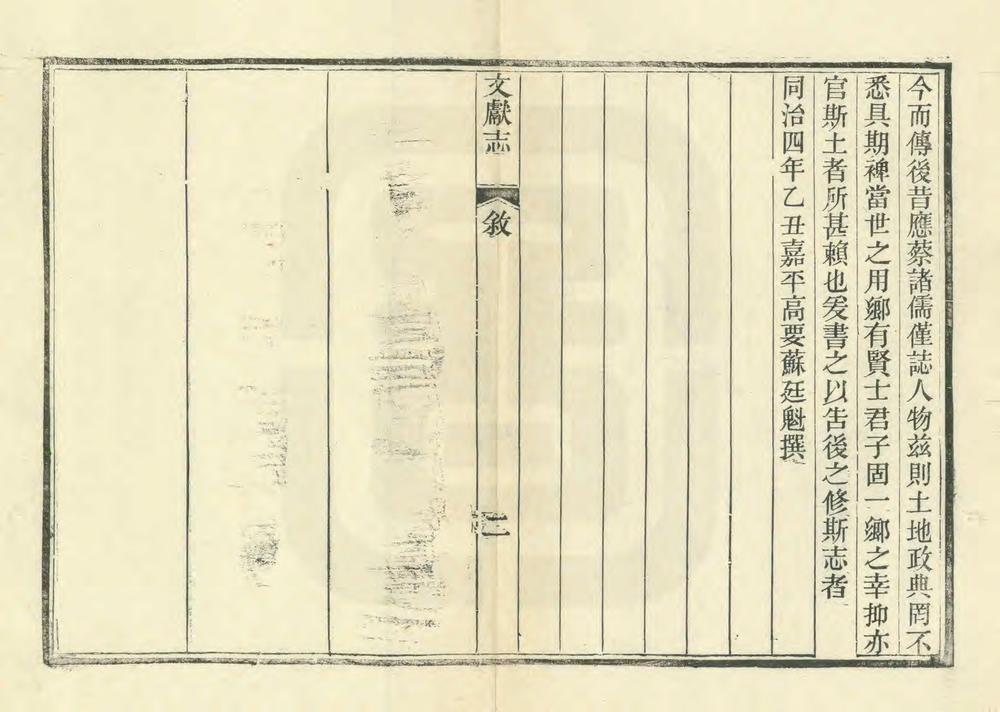 今而傳後昔應蔡諸儒僅誌人物茲則土地政典罔不
悉具期裨當世之用鄉有賢士君子固一鄉之幸抑亦
官斯土者所甚賴也爰書之以吿後之修斯志者
同治四年乙丑嘉平高要蘇廷魁撰
文獻志
敘
二